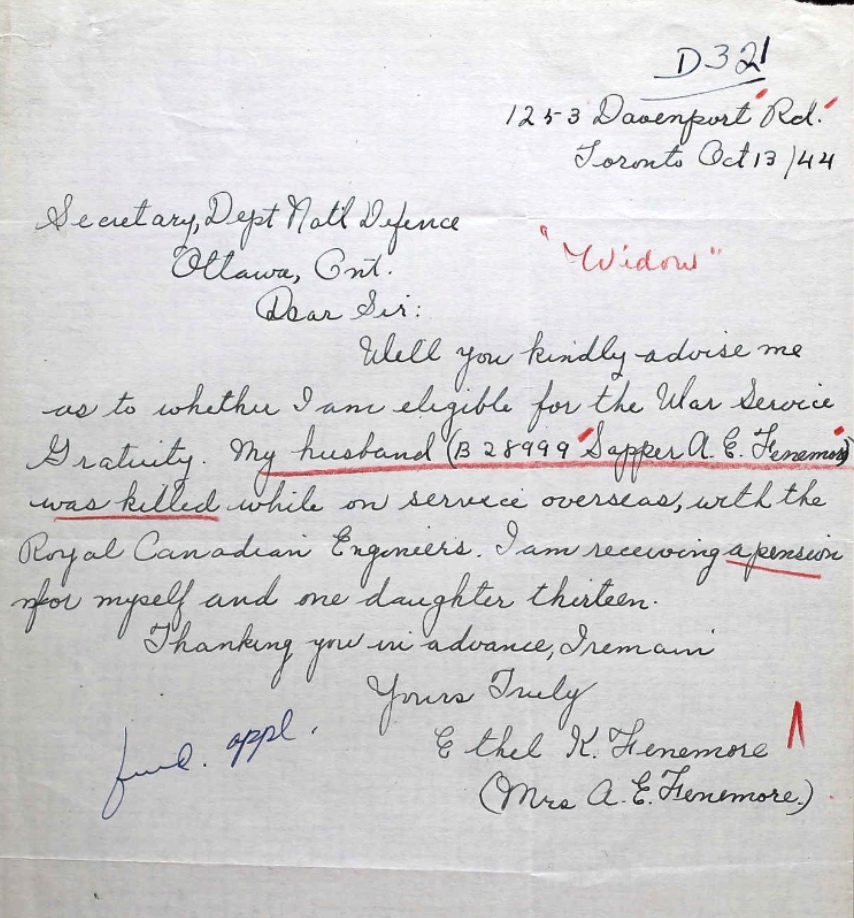 D321
1253 Davenport Rd.
Toronto Oct 13/44
Secretary, Dept Nat'l Defence
"Widow"
Ottawa, Ont.
Dear Sir:
Will you kindly advise me
as to whether I am eligible for the War Service
Gratuity. My husband (B 28999 Sapper A. E. Fenemore)
was killed while on service overseas, with the
Royal Canadian Engineers. I am receiving a pension
for myself and one daughter thirteen.
Thanking you in advance, I remain
Yours Truly
appl.
Ethel K. Fenemore
(Mrs A. E. Fenemore.)